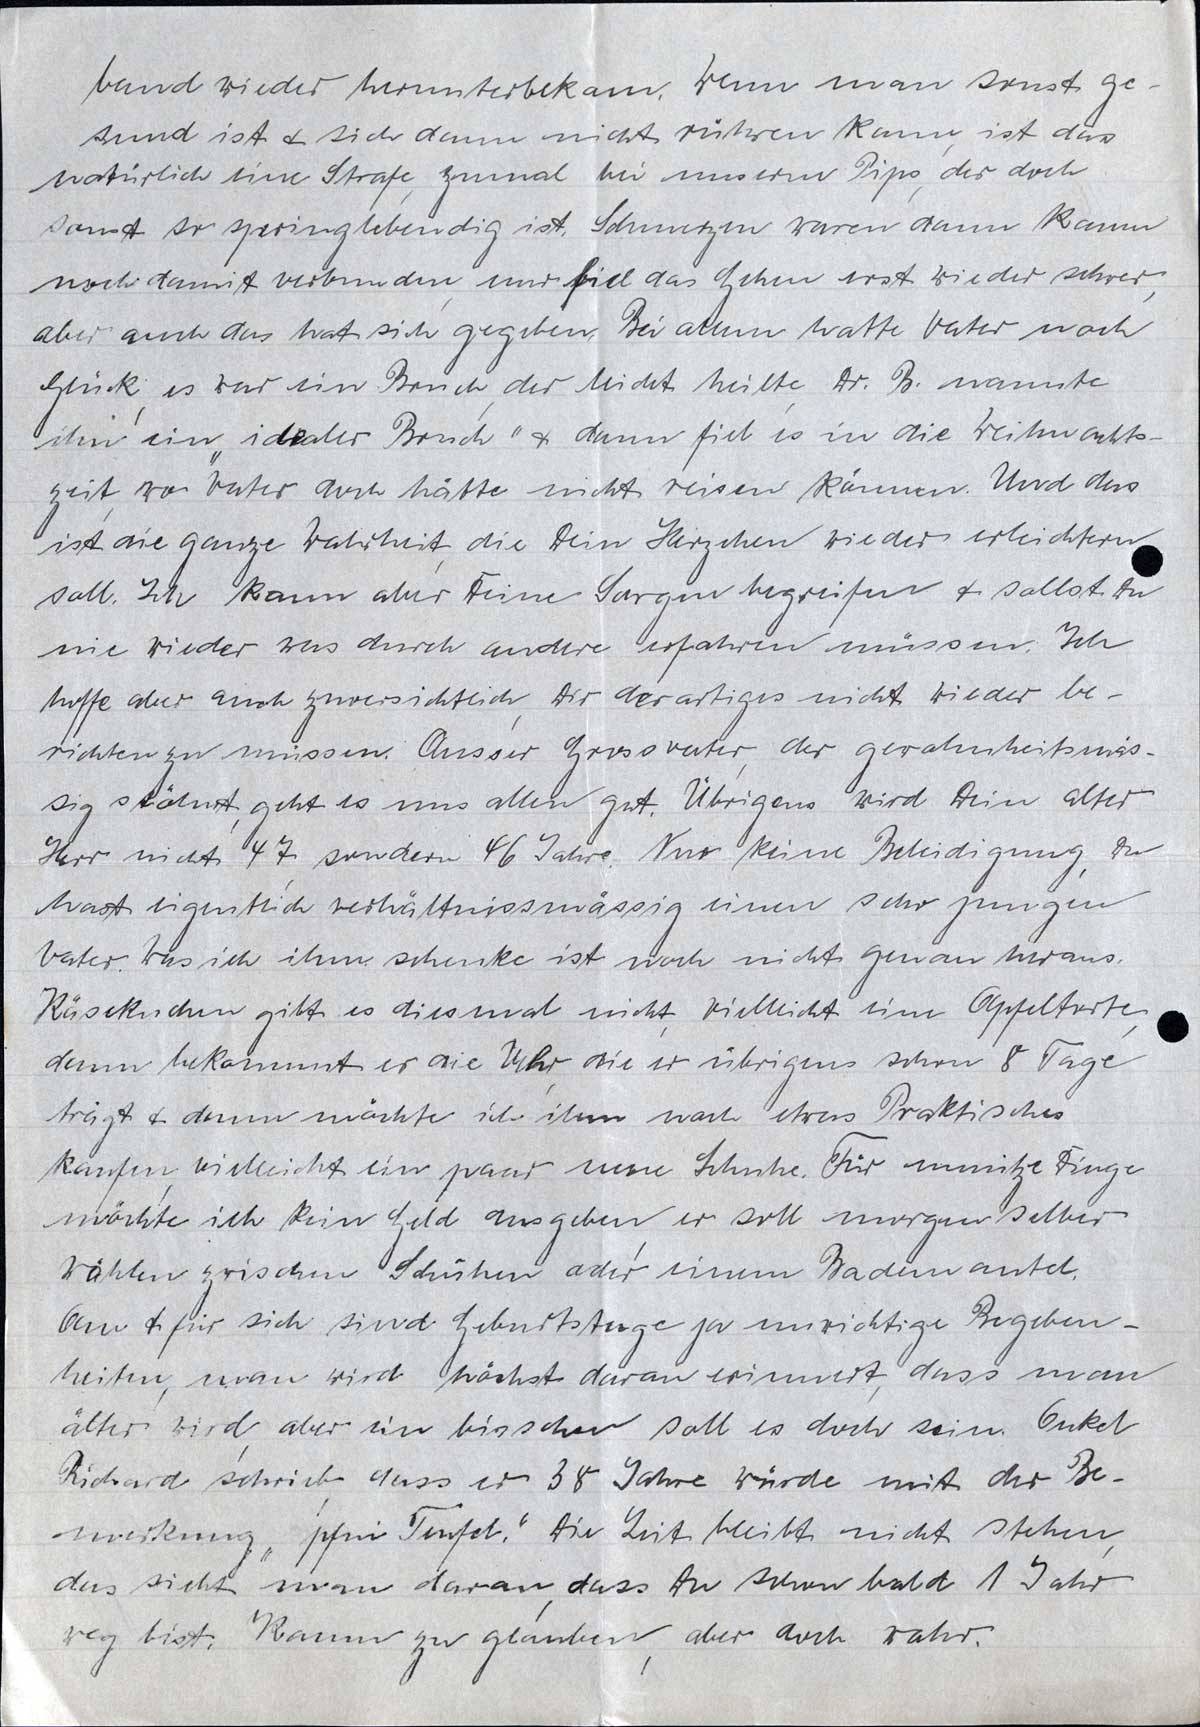 band wieder herunterbekam. Wenn man sonst ge-
sund ist & sich dann nicht rühren kann, ist das
natürlich eine Strafe, zumal bei unserm Pips, der doch
sonst so springlebendig ist. Schmerzen waren dann kaum
noch damit verbunden, nur fiel das Gehen erst wieder schwer,
aber auch das hat sich gegeben. Bei allem hatte Vater noch
Glück, es war ein Bruch, der leicht heilte, Dr. B. nannte
ihn ein „idealer Bruch" & dann fiel es in die Weihnachts-
zeit, wo Vater doch hätte nicht reisen können. Und das
ist die ganze Wahrheit, die Dein Herzchen wieder erleichtern
soll. Ich kann aber Deine Sorgen begreifen & sollst Du
nie wieder was durch andere erfahren müssen. Ich
hoffe aber auch zuversichtlich, Dir derartiges nicht wieder be-
richten zu müssen. Ausser Grossvater, der gewohnheitsmäs-
sig stöhnt, geht es uns allen gut. Übrigens wird Dein alter
Herr nicht 47, sondern 46 Jahre. Nur keine Beleidigung, Du
hast eigentlich verhältnissmässig einen sehr jungen
Vater. Was ich ihm schenke ist noch nicht genau heraus.
Käsekuchen gibt es diesmal nicht, vielleicht eine Apfeltorte,
dann bekommt er die Uhr, die er übrigens schon 8 Tage
trägt & dann möchte ich ihm noch etwas Praktisches
kaufen, vielleicht ein paar neue Schuhe. Für unnütze Dinge
möchte ich kein Geld ausgeben, er soll morgen selber
wählen zwischen Schuhen oder einem Bademantel.
An & für sich sind Geburtstage ja unwichtige Begeben-
heiten, man wird höchst daran erinnert, dass man
älter wird, aber ein bisschen soll es doch sein. Onkel
Richard schrieb, dass er 38 Jahre würde mit der Be-
merkung „pfui Teufel." Die Zeit bleibt nicht stehen,
das sieht man daran, dass Du schon bald 1 Jahr
weg bist. Kaum zu glauben, aber doch wahr.